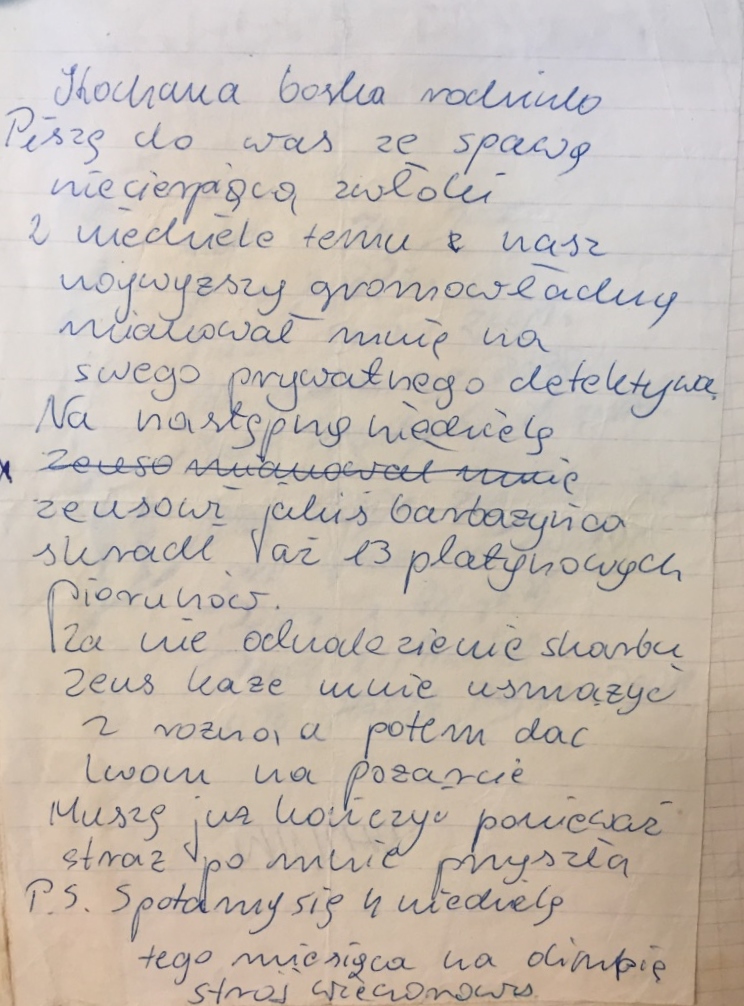 Kochana boska rodzinko
Piszę do was ze spawą
niecierpiącą zwłoki
2 niedziele temu nasz
najwyższy gromowładny
mianował mnię na
swego prywatnego detektywa
Na następny niedzielę
Zeuso mianował mnie
zeusowi jakiś barbazyńca
skradł aż 13 platynowych
piorunów.
Za nie odnalezienie skarbu
zeus każe mnie usmażyć
z rożna, a potem dac
lwom na pożarcie
Muszę już kończyć ponieważ
straz po mnie przyszła
P.S. Spotamy się 4 niedzielę
tego miesiąca na olimpie
strój wieczorowy.